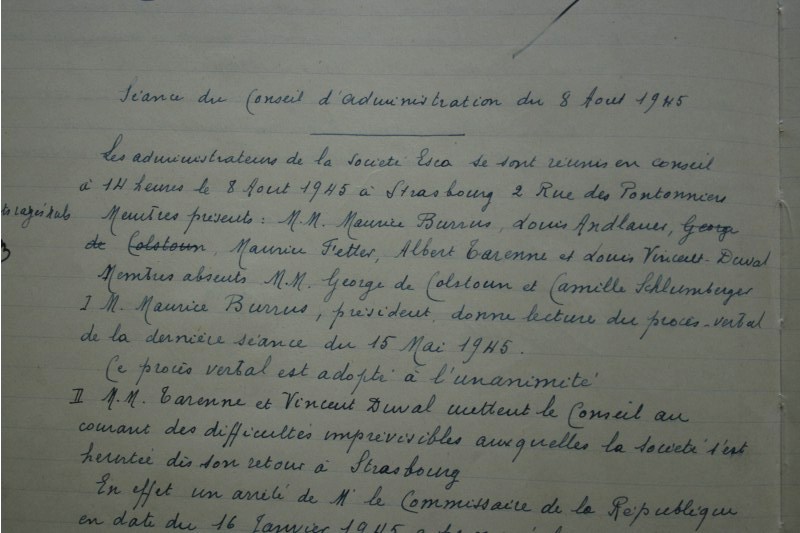 Séance du Conseil d'administration du 8 Aout 1945
Les administrateurs de la Société Esca se sont réunis en conseil
à 14 heures le 8 Aout 1945 à Strasbourg 2 Rue des Pontonniers
Membres présents : M.M. Maurice Burrus, Louis Andlauer, George
de Colstoun, Maurice Fetter, Albert Tarenne et Louis Vincent-Duval
Membres absents M.M. George de Colstoun et Camille Schlumberger
I M. Maurice Burrus, président, donne lecture du procès-verbal
de la dernière séance du 15 Mai 1945.
Ce procès verbal est adopté à l'unanimité
II M.M. Tarenne et Vincent Duval mettent le Conseil au
courant des difficultés imprévisibles auxquelles la société s'est
heurtée dès son retour à Strasbourg
En effet un arrêté de Mr le Commissaire de la République
en date du 16 Janvier 1945